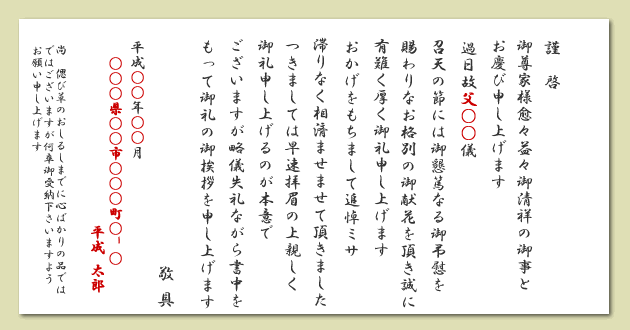 謹啓
御尊家様愈々益々御清祥の御事と
お慶び申し上げます
過日故父〇〇儀
召天の節には御懇篤なる御弔慰を
賜わりなお格別の御献花を頂き誠に
有難く厚く御礼申し上げます
おかげをもちまして追悼ミサ
滞りなく相済ませませて頂きました
つきましては早速拝眉の上親しく
御礼申し上げるのが本意で
ございますが略儀失礼ながら書中を
もって御礼の御挨拶を申し上げます
敬具
平成〇〇年〇〇月
〇〇〇県〇〇市〇〇〇町〇-〇
平成 太郎
尚 偲び草のおしるしまでに心ばかりの品では
ではございますが何卒御受納下さいますよう
お願い申し上げます